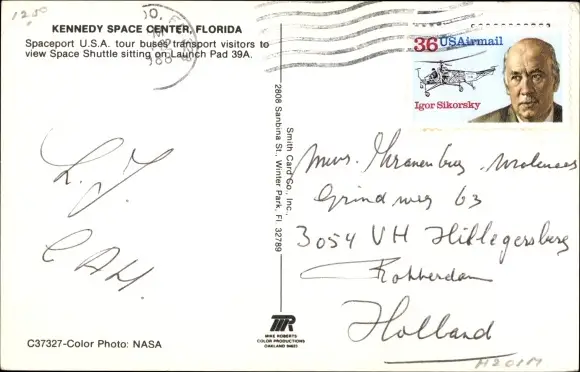 1250
KENNEDY SPACE CENTER, FLORIDA
Spaceport U.S.A. tour buses transport visitors to
view Space Shuttle sitting on Launch Pad 39A.
36 USAirmail
Igor Sikorsky
Smith Card Co., Inc.,
2808 Sanbina St., Winter Park, Fl. 32789
L. J.
C A H.
Kranenburg
Grindweg 63
3054 VH Hillegersberg
Rotterdam
Holland
MIKE ROBERTS
COLOR PRODUCTIONS
OAKLAND 94623
C37327-Color Photo: NASA